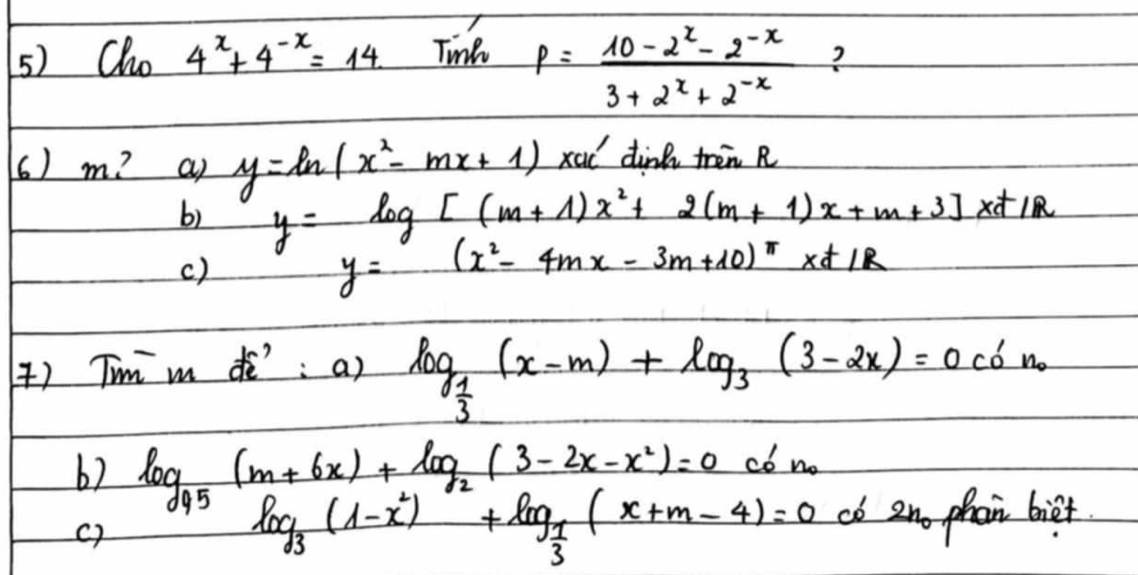 5) Cho 4^x + 4^-x = 14. Tính P = (10 - 2^x - 2^-x) / (3 + 2^x + 2^-x) ?
6) m? a) y = ln(x² - mx + 1) xác định trên R
b) y = log [(m + 1)x² + 2(m + 1)x + m + 3] xđ /R
c) y = (x² - 4mx - 3m + 10)^π xđ /R
7) Tìm m để : a) log_{1/3} (x - m) + log_3 (3 - 2x) = 0 có n₀
b) log_{0,5} (m + 6x) + log_2 (3 - 2x - x²) = 0 có n₀
c) log_3 (1 - x²) + log_{1/3} (x + m - 4) = 0 có 2n₀ phân biệt.